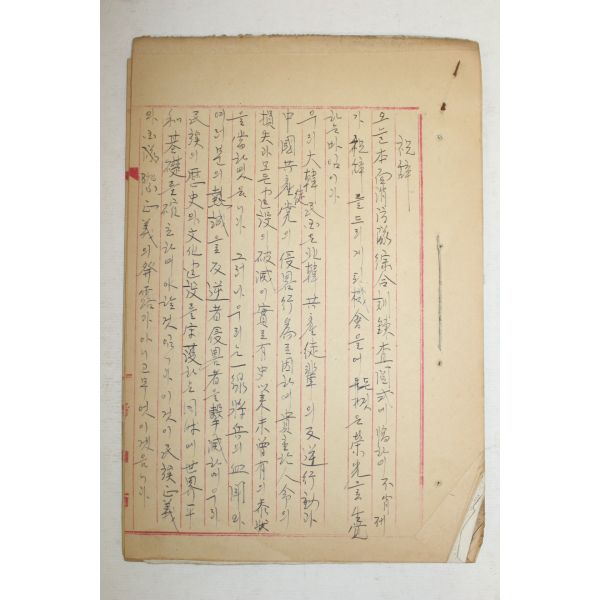 祝辭
오늘 本面消防隊綜合訓鍊査閱式에 臨하여 不肖 제
가 祝辭를 드리게 된 機會를 얻은 것은 榮光으로
하는 바입니다
우리 大韓民國은 北韓共産徒輩의 反逆行動과
中國共産党의 侵畧行爲로 因하여 貴重한 人命의
損失과 모든 建設의 破滅이 實로 有史以來 未曾有의 慘狀
을 當하엿읍니다 그러나 우리는 一線將兵의 血鬪와
여러분의 熱誠으로 反逆者 侵畧者를 擊滅하며 우리
民族의 歷史와 文化建設을 守護하는 同時에 世界平
和 基礎를 確立하여야 할 것입니다 이것이 民族正義
正義의 發露가 아니고 무엇이겠읍니까